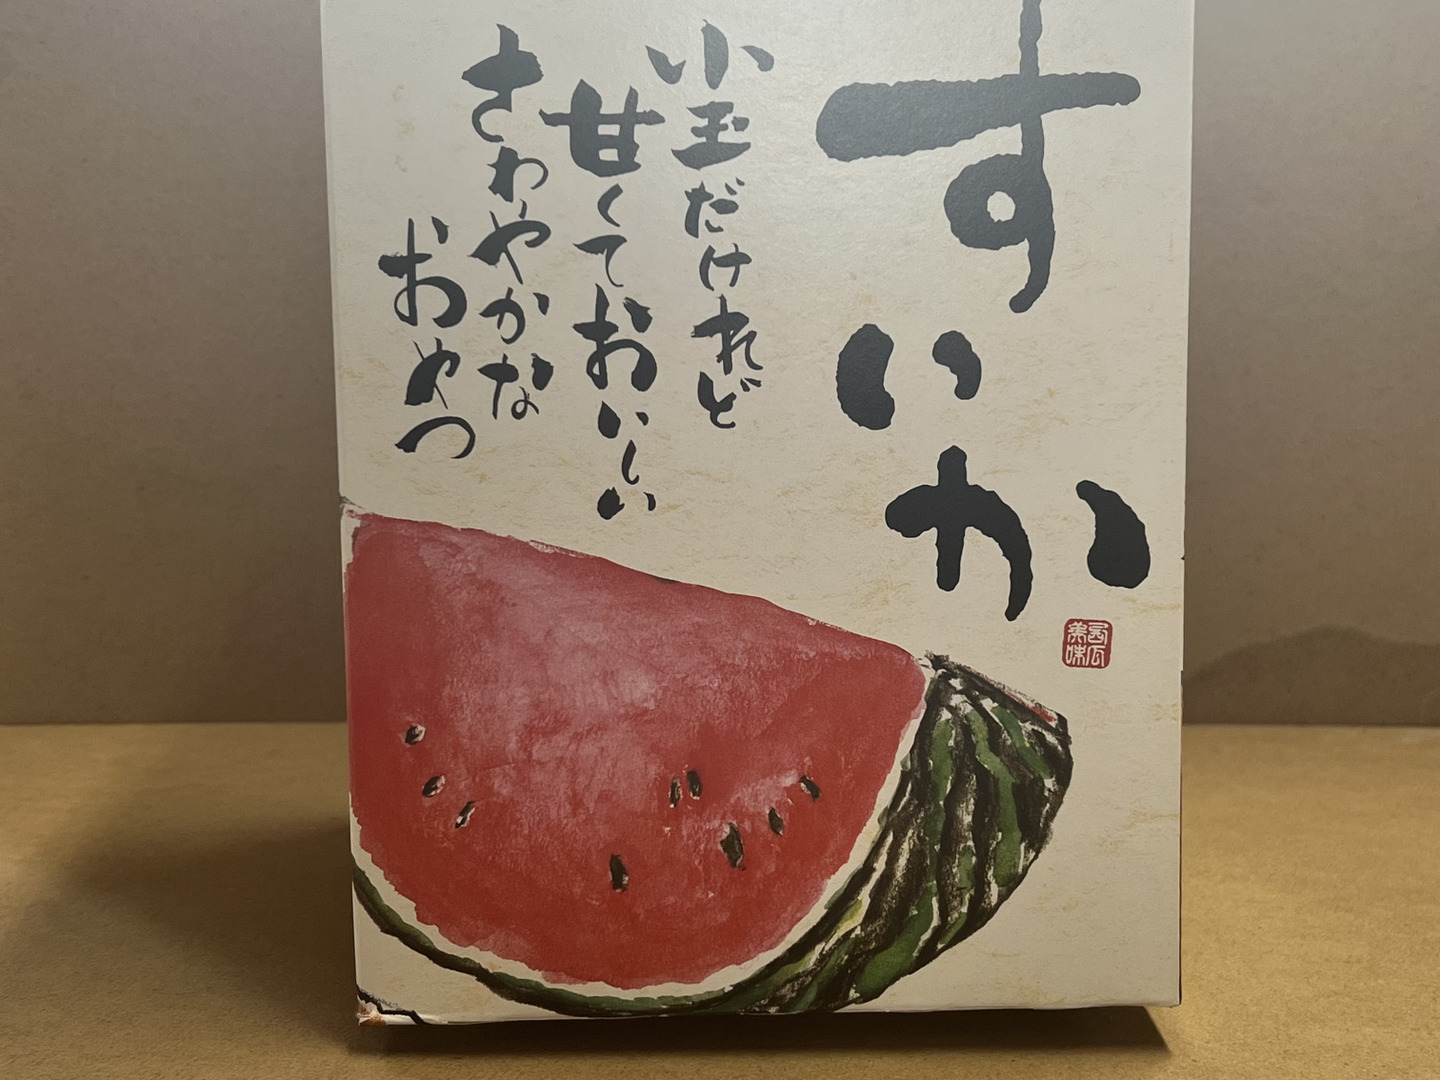 すいか
小玉だけれど
甘くておいしい
さわやかな
おやつ
西瓜
美味